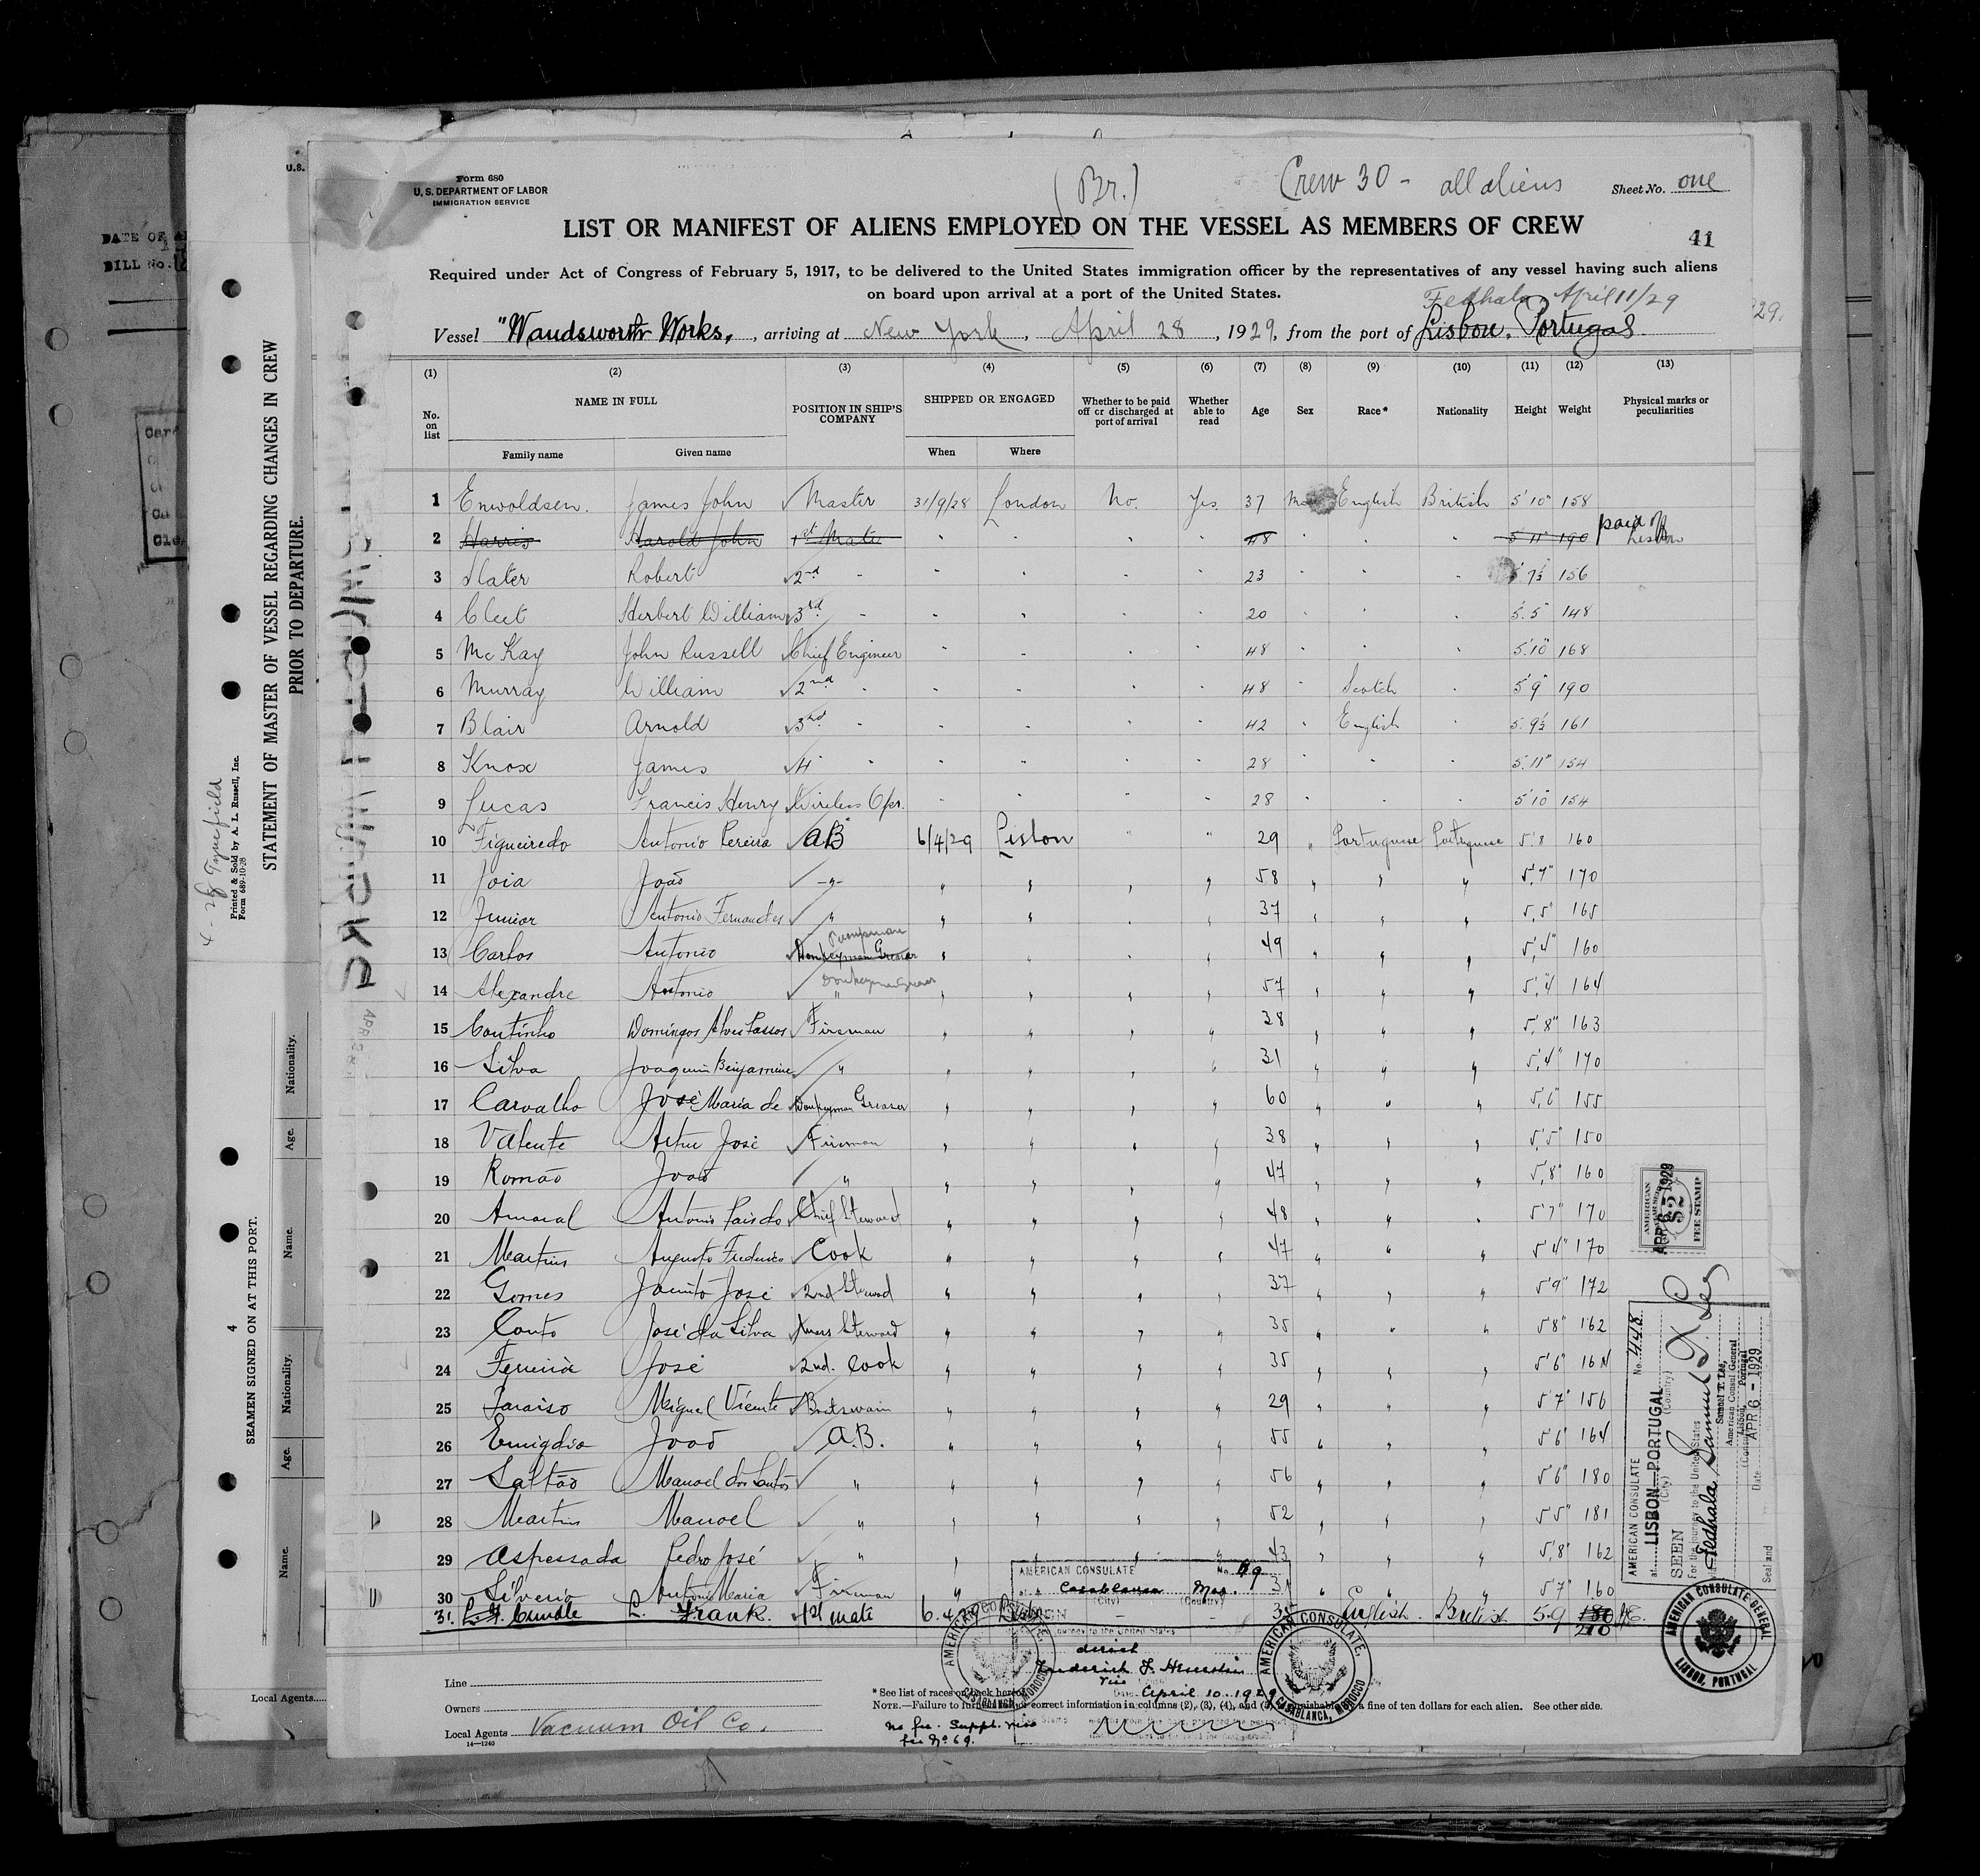 U.S.
Form 680
U. S. DEPARTMENT OF LABOR
IMMIGRATION SERVICE
(Br.)
Crew 30 - all aliens
Sheet No. one
LIST OR MANIFEST OF ALIENS EMPLOYED ON THE VESSEL AS MEMBERS OF CREW
41
Required under Act of Congress of February 5, 1917, to be delivered to the United States immigration officer by the representatives of any vessel having such aliens
on board upon arrival at a port of the United States.
Fedhala April 11/29
Vessel "Wandsworth Works, , arriving at New York , April 28 , 1929, from the port of Lisbon. Portugal.
29.
(1) (2) (3) (4) (5) (6) (7) (8) (9) (10) (11) (12) (13)
No. on list NAME IN FULL POSITION IN SHIP'S COMPANY SHIPPED OR ENGAGED Whether to be paid off or discharged at port of arrival Whether able to read Age Sex Race* Nationality Height Weight Physical marks or peculiarities
Family name Given name When Where
1 Enwoldsen. James John Master 31/9/28 London No. Yes. 37 English British 5'10" 158
2 Harris Harold John 1st Mate " " " " 48 " " " 5'11" 190 paid off Lisbon
3 Slater Robert 2nd " " " " " 23 " " " 7½ 156
4 Cleet Herbert William 3rd " " " " " 20 " " " 5.5" 148
5 McKay John Russell Chief Engineer " " " " 48 " " " 5'10" 168
6 Murray William 2nd " " " " " 48 " Scotch " 5'9" 190
7 Blair Arnold 3rd " " " " " 42 " English " 5.9½ 161
8 Knox James 4 " " " " " 28 " " " 5.11" 154
9 Lucas Francis Henry Wireless Opr. " " " " 28 " " " 5'10" 154
10 Figueiredo Antonio Pereira AB 6/4/29 Lisbon " " 29 " Portuguese Portuguese 5'8 160
11 Joia João -"- " " " " 58 " " " 5'7" 170
12 Junior Antonio Fernandes " " " " " 37 " " " 5,5" 165
Pumpman
13 Carlos Antonio Donkeyman Greaser " " " " 49 " " " 5'4" 160
Donkeyman Greaser
14 Alexandre Antonio " " " " " 57 " " " 5'4" 164
15 Coutinho Domingos Alves Passos Fireman " " " " 38 " " " 5'8" 163
16 Silva Joaquim Benjamine " " " " " 31 " " " 5'4" 170
17 Carvalho José Maria de Donkeyman Greaser " " " " 60 " " " 5'6" 155
18 Valente Artur José Fireman " " " " 38 " " " 5'5" 150
19 Romão João " " " " " 47 " " " 5,8" 160
20 Amaral Antonio Pais do Chief Steward " " " " 48 " " " 5'7" 170
21 Martins Augusto Frederico Cook " " " " 47 " " " 5'4" 170
22 Gomes Jacinto José 2nd Steward " " " " 37 " " " 5'9" 172
23 Couto José da Silva Mess Steward " " " " 35 " " " 5'8" 162
24 Ferreira José 2nd. Cook " " " " 35 " " " 5'6" 164
25 Paraiso Miguel Vicente Boatswain " " " " 29 " " " 5'7" 156
26 Emigdio João A.B. " " " " 55 " " " 5'6" 164
27 Saltão Manoel dos Santos " " " " " 56 " " " 5'6" 180
28 Martins Manoel " " " " " 52 " " " 5'5" 181
29 Aspessada Pedro José " " " " " 43 " " " 5'8" 162
30 Silverio Antonio Maria Fireman " " " " " " 5'7" 160
31. L. Frank. 1st mate 6.4.29 English. British. 5.9 180 210
AMERICAN CONSULATE No. 69
at Casablanca Mor.
(City) (Country)
journey to the United States
Vice
Date April 10. 1929
AMERICAN CONSULATE, CASABLANCA, MOROCCO
AMERICAN CONSULATE, CASABLANCA, MOROCCO
Line
Owners
Local Agents Vacuum Oil Co.
14—1240
* See list of races on back hereof
NOTE.—Failure to furnish correct information in columns (2), (3), (4), and (5) a fine of ten dollars for each alien. See other side.
no fee. Suppl. visa
fee No 69.
AMERICAN
FEE STAMP
$2
APR 6 - 1929
AMERICAN CONSULATE No. 448.
at LISBON PORTUGAL
(City) (Country)
SEEN
For the journey to the United States
Fedhala
Samuel T. Lee
Samuel T. Lee,
American Consul General
Lisbon, Portugal
Date APR 6 - 1929
Seal and
AMERICAN CONSULATE GENERAL LISBON, PORTUGAL
STATEMENT OF MASTER OF VESSEL REGARDING CHANGES IN CREW
PRIOR TO DEPARTURE.
4 - 28 Tynefield
Printed & Sold by A. L. Russell, Inc.
Form 689-10-28
SEAMEN SIGNED ON AT THIS PORT.
4
Nationality.
Age.
Name.
Nationality.
Age.
Name.
Local Agents
DATE OF
BILL No.